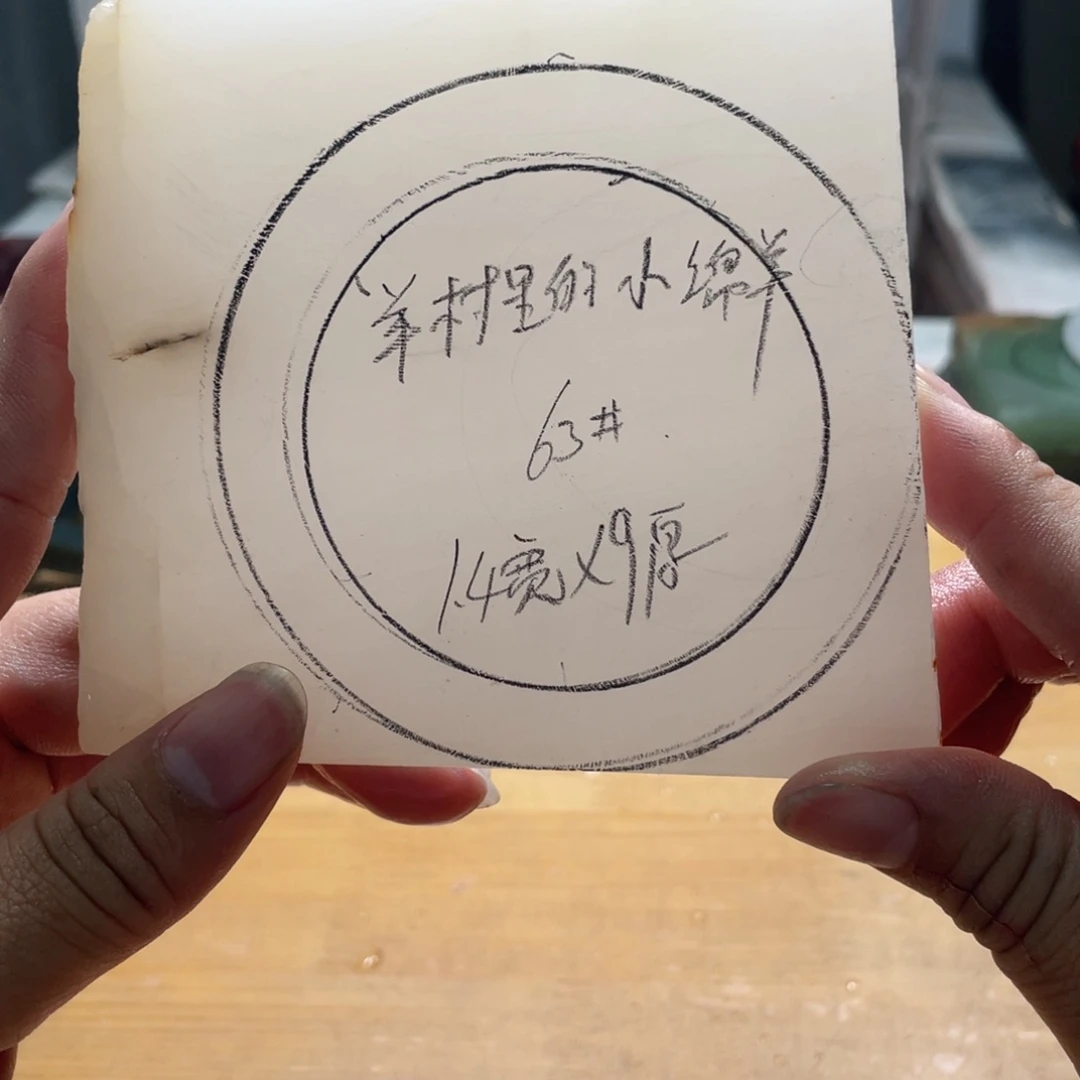 羊村里的小绵羊
63#
1.4宽×9厚